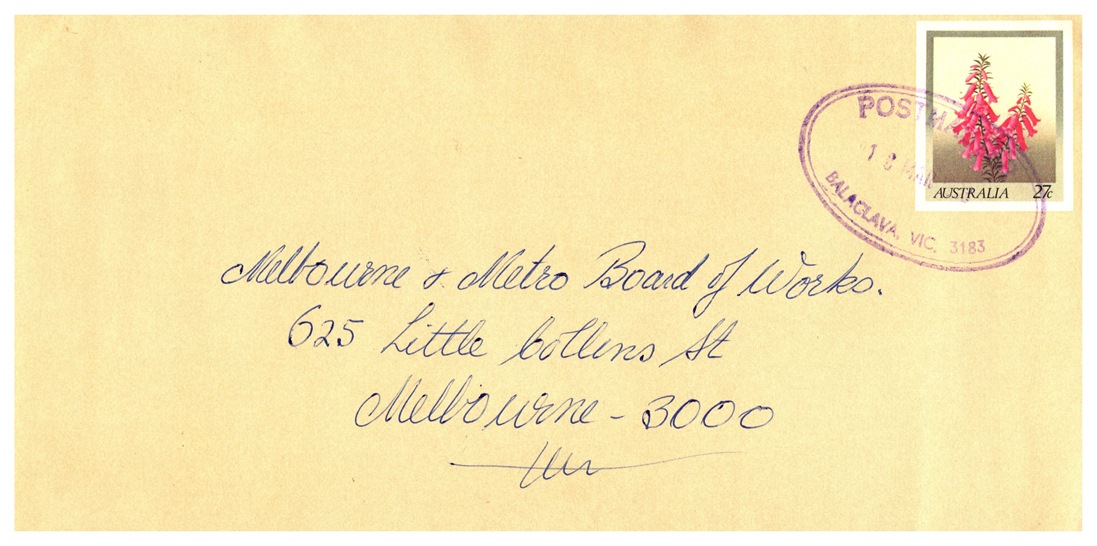 POSTMA
18 MAR
BALACLAVA, VIC. 3183
AUSTRALIA 27c
Melbourne & Metro Board of Works.
625 Little Collins St
Melbourne - 3000